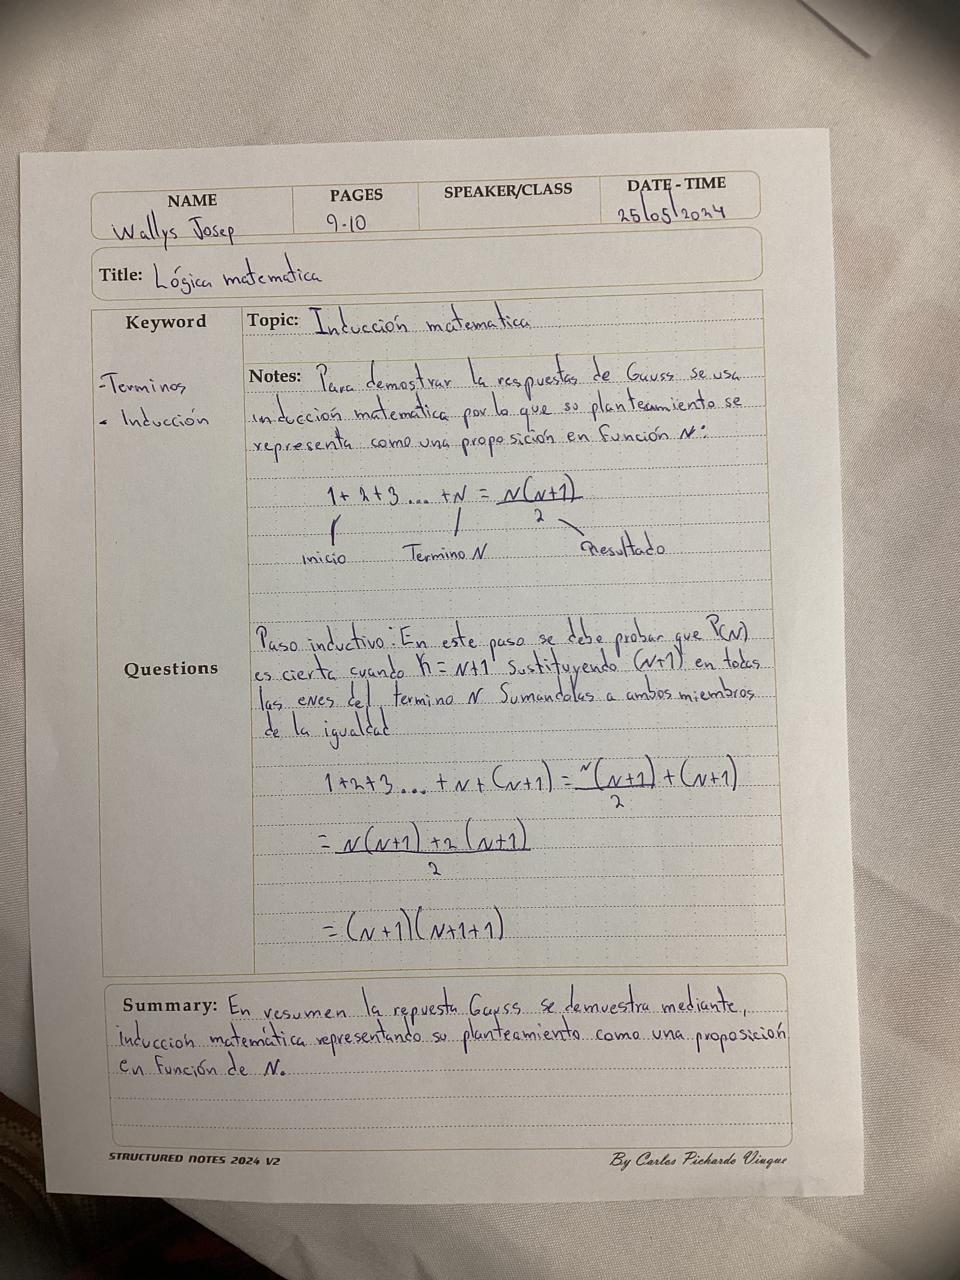 NAME PAGES SPEAKER/CLASS DATE - TIME
Wallys Josep 9-10 25/05/2024
Title: Lógica matematica
Keyword
- Terminos
- Inducción
Topic: Inducción matematica
Notes: Para demostrar la respuestas de Gauss se usa
inducción matemática por lo que su planteamiento se
representa como una proposición en función N:
1+2+3 ... +N = N(N+1)
2
Inicio Termino N Resultado
Questions
Paso inductivo: En este paso se debe probar que P(N)
es cierta cuando K = N+1 Sustituyendo (N+1) en todas
las enes del termino N Sumandolas a ambos miembros
de la igualdad
1+2+3 ... + N + (N+1) = N(N+1) + (N+1)
2
= N(N+1) +2 (N+1)
2
= (N+1)(N+1+1)
Summary: En resumen la repuesta Gauss se demuestra mediante,
inducción matemática representando su planteamiento como una proposición
en Función de N.
STRUCTURED NOTES 2024 V2 By Carlos Pichardo Viuque